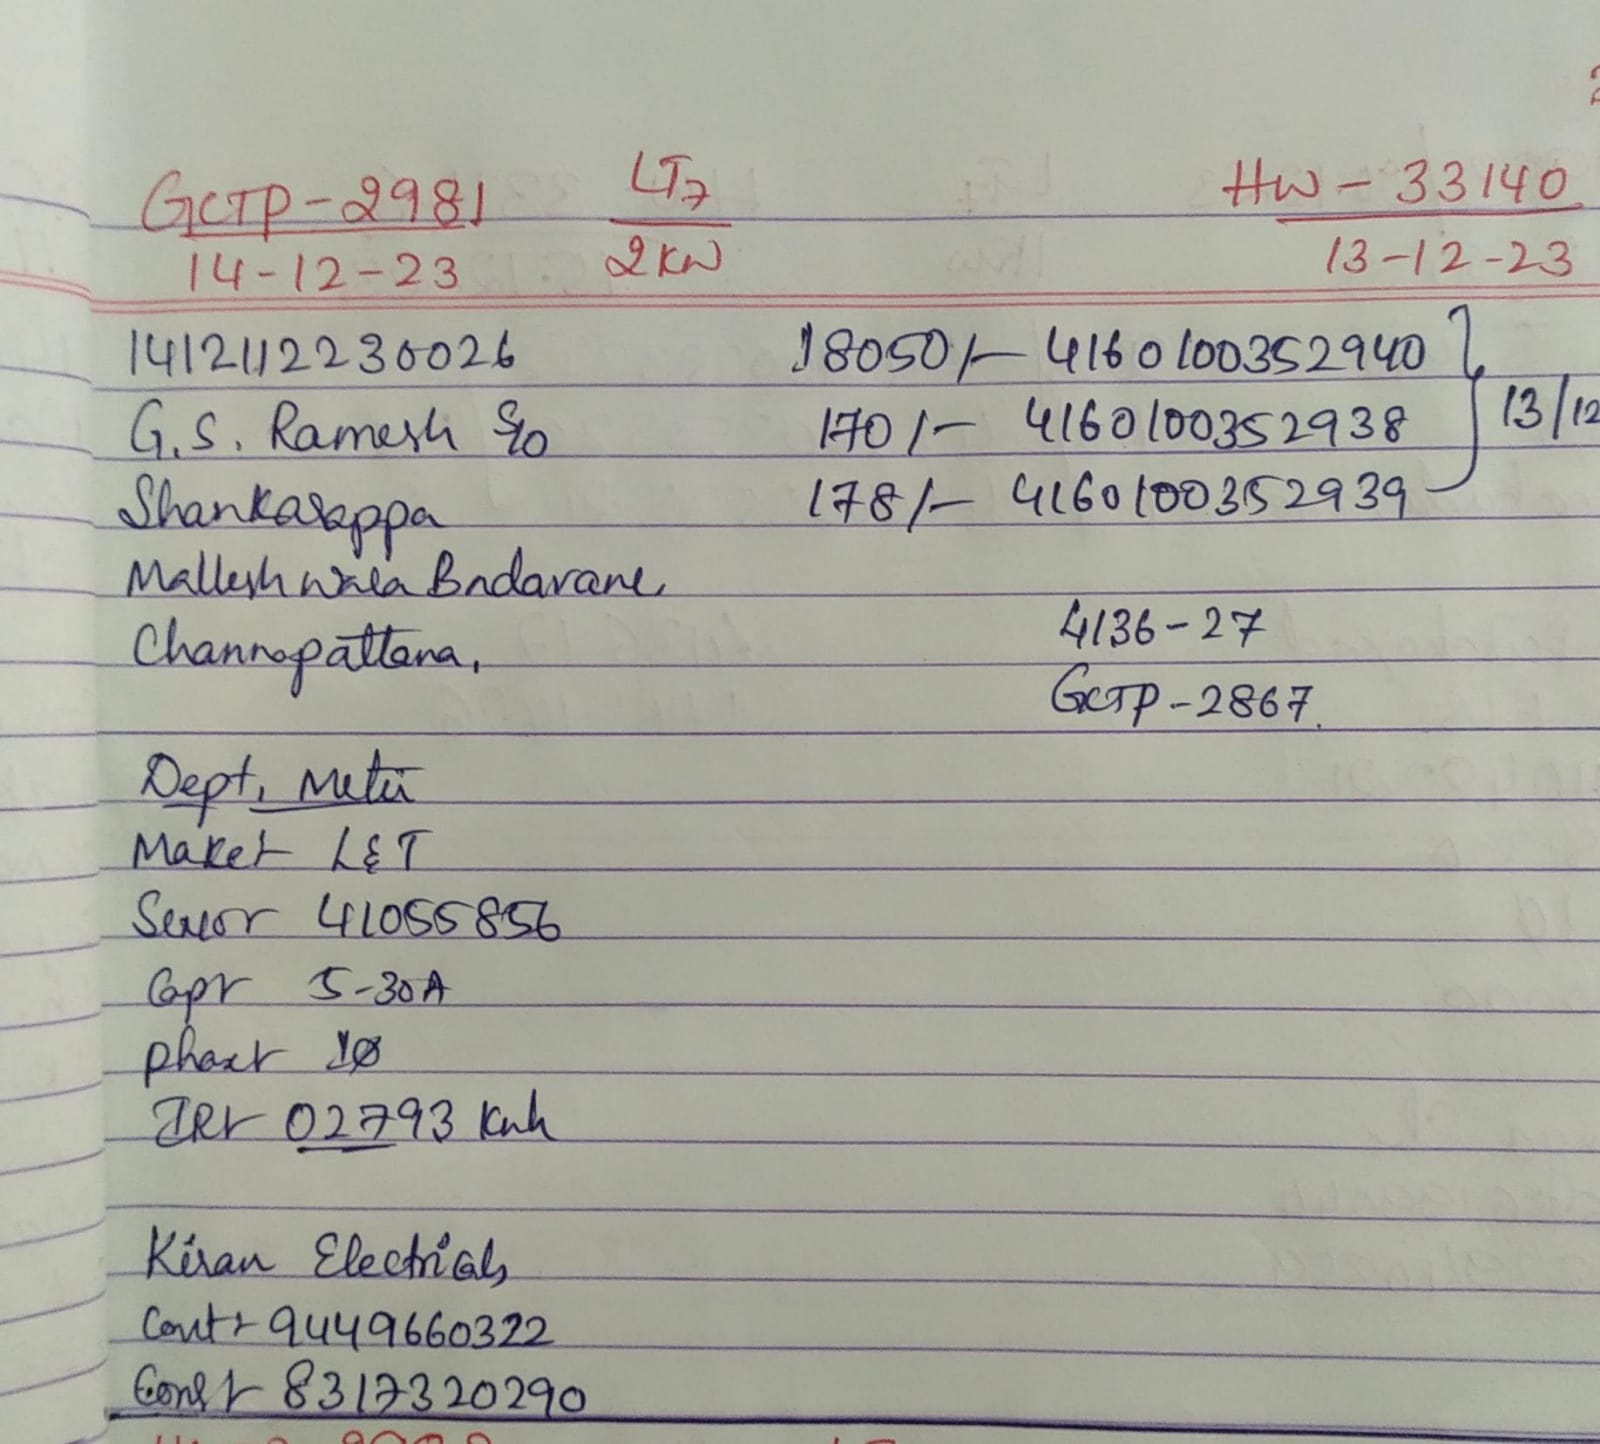 GCTP-2981 LT7 HW-33140
14-12-23 2KW 13-12-23
1412112230026 18050/- 4160100352940
G.S. Ramesh S/o 170/- 4160100352938 13/12
Shankarappa 178/- 4160100352939
Malleshwara Badavane,
Channapattana, 4136-27
GCTP-2867.
Dept, Meter
Make:- L&T
Sl.no:- 41055856
Cap:- 5-30A
phase:- 1Ø
IR:- 02793 Kwh
Kiran Electricals
Cont:- 9449660322
Cons:- 8317320290